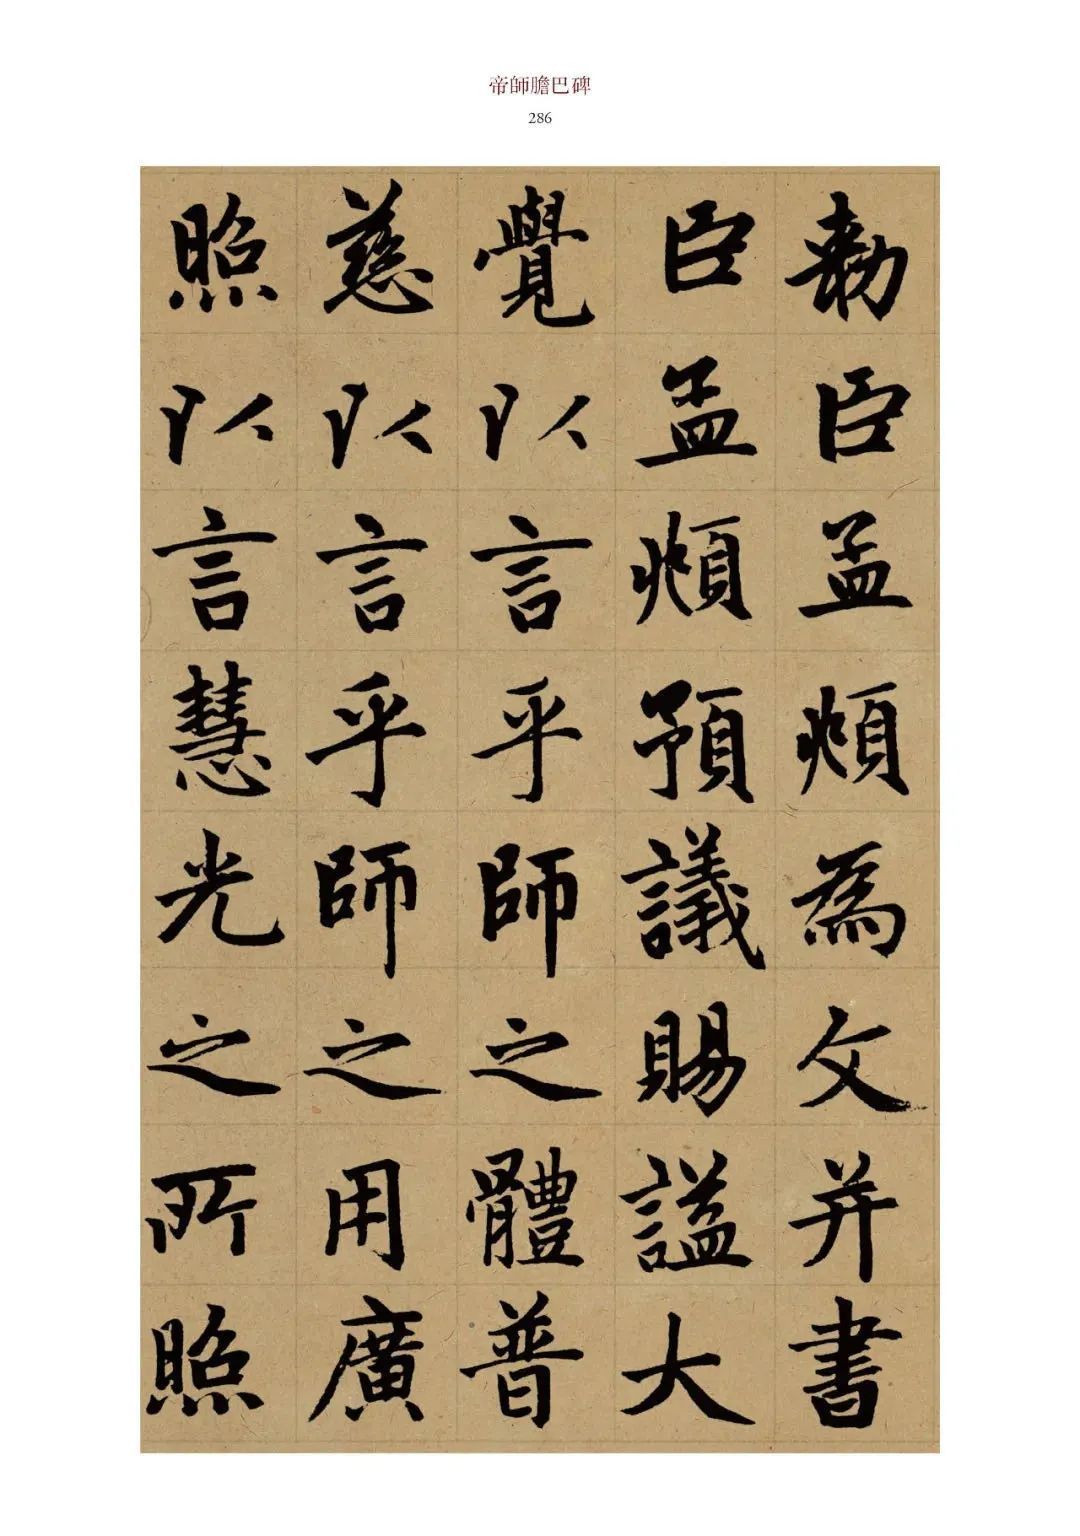 帝師膽巴碑
286
勅臣孟頫為文并書
臣孟頫預議賜謚大
覺以言乎師之體普
慈以言乎師之用廣
照以言慧光之所照